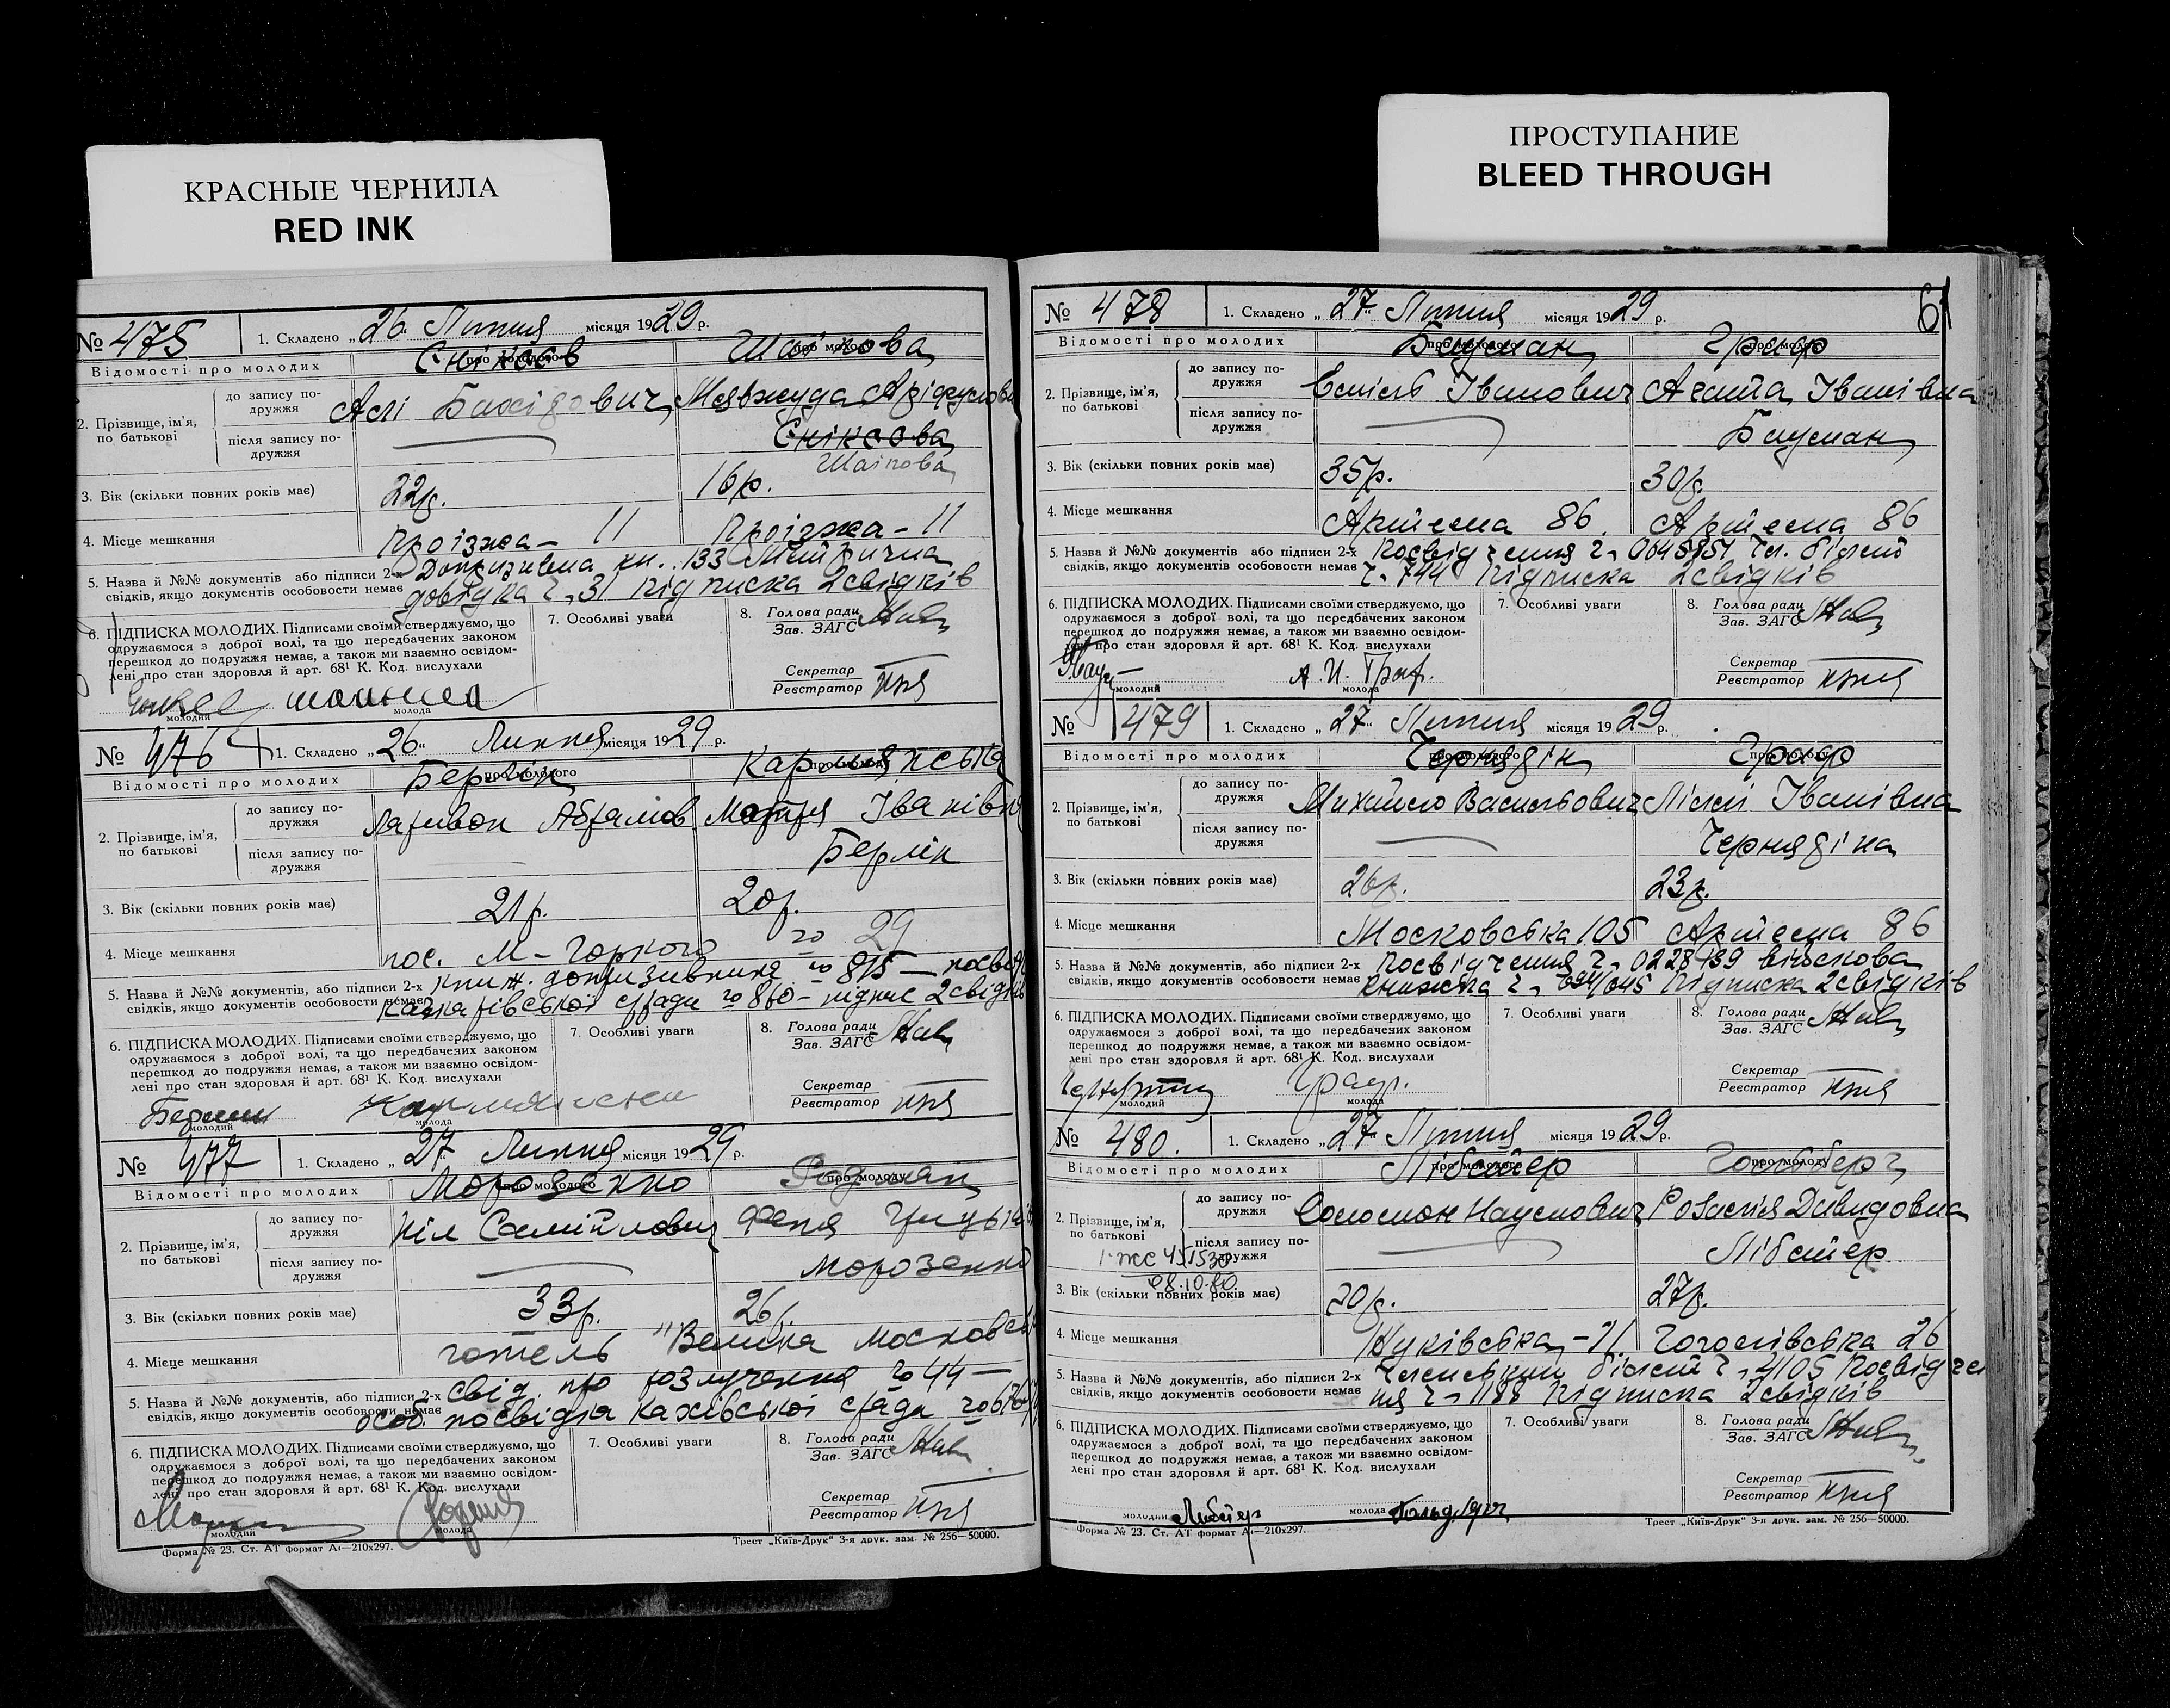 КРАСНЫЕ ЧЕРНИЛА
RED INK
ПРОСТУПАНИЕ
BLEED THROUGH
№ 475 1. Складено „26" Липня місяця 1929 р.
Відомості про молодих про молодого про молоду Шаіпова
2. Прізвище, ім'я, по батькові
до запису подружжя Аслі
після запису подружжя
Шаіпова
3. Вік (скільки повних років має) 22р. 16р.
4. Місце мешкання Проізжа - 11 Проізжа - 11
5. Назва й №№ документів або підписи 2-х свідків, якщо документів особовости немає Допризивна кн. 133 Метрична
довідка ч. 31 підписка 2 свідків
6. ПІДПИСКА МОЛОДИХ. Підписами своїми стверджуємо, що
одружаємося з доброї волі, та що передбачених законом
перешкод до подружжя немає, а також ми взаємно освідом-
лені про стан здоровля й арт. 68¹ К. Код. вислухали
молодий молода
7. Особливі уваги
8. Голова ради
Зав. ЗАГС
Секретар
Реєстратор
№ 476 1. Складено „26" Липня місяця 1929 р.
Відомості про молодих Берлін про молодого про молоду
2. Прізвище, ім'я, по батькові
до запису подружжя Абрамов Мотря Іванівна
після запису подружжя Берлін
3. Вік (скільки повних років має) 21р. 20р.
4. Місце мешкання пос. М-Горкого 29
5. Назва й №№ документів, або підписи 2-х свідків, якщо документів особовости немає книж. допризивника № 815 — посвід
с/ради № 860 - підпис 2 свідків
6. ПІДПИСКА МОЛОДИХ. Підписами своїми стверджуємо, що
одружаємося з доброї волі, та що передбачених законом
перешкод до подружжя немає, а також ми взаємно освідом-
лені про стан здоровля й арт. 68¹ К. Код. вислухали
Берлин
молодий молода
7. Особливі уваги
8. Голова ради
Зав. ЗАГС
Секретар
Реєстратор
№ 477 1. Складено „27" Липня місяця 1929 р.
Відомості про молодих Морозенко про молодого про молоду
2. Прізвище, ім'я, по батькові
до запису подружжя Ніл Самійлович Феня
після запису подружжя Морозенко
3. Вік (скільки повних років має) 33р. 26р.
4. Місце мешкання готель "Велика Московсь
5. Назва й №№ документів, або підписи 2-х свідків, якщо документів особовости немає свід. про розлучення № 44 —
особ. посвідка Каховської с/ради
6. ПІДПИСКА МОЛОДИХ. Підписами своїми стверджуємо, що
одружаємося з доброї волі, та що передбачених законом
перешкод до подружжя немає, а також ми взаємно освідом-
лені про стан здоровля й арт. 68¹ К. Код. вислухали
молодий молода
7. Особливі уваги
8. Голова ради
Зав. ЗАГС
Секретар
Реєстратор
Форма № 23. Ст. АТ формат А₄—210x297. Трест „Київ-Друк" 3-я друк. зам. № 256—50000.
61
№ 478 1. Складено „27" Липня місяця 1929 р.
Відомості про молодих Бауман про молодого Граф про молоду
2. Прізвище, ім'я, по батькові
до запису подружжя Іванович Агата Іванівна
після запису подружжя Бауман
3. Вік (скільки повних років має) 35р. 30р.
4. Місце мешкання Артема 86 Артема 86
5. Назва й №№ документів або підписи 2-х свідків, якщо документів особовости немає Посвідчення Чл. білет
ч. 744 підписка 2 свідків
6. ПІДПИСКА МОЛОДИХ. Підписами своїми стверджуємо, що
одружаємося з доброї волі, та що передбачених законом
перешкод до подружжя немає, а також ми взаємно освідом-
лені про стан здоровля й арт. 68¹ К. Код. вислухали
А. И. Граф.
молодий молода
7. Особливі уваги
8. Голова ради
Зав. ЗАГС
Секретар
Реєстратор
№ 479 1. Складено „27" Липня місяця 1929 р.
Відомості про молодих Чернядін Граф про молоду
2. Прізвище, ім'я, по батькові
до запису подружжя Михайло Васильович Лілєі Іванівна
після запису подружжя Чернядіна
3. Вік (скільки повних років має) 26р. 23р.
4. Місце мешкання Московська 105 Артема 86
5. Назва й №№ документів, або підписи 2-х свідків, якщо документів особовости немає Посвідчення ч. 0228139 військова
книжка підписка 2 свідків
6. ПІДПИСКА МОЛОДИХ. Підписами своїми стверджуємо, що
одружаємося з доброї волі, та що передбачених законом
перешкод до подружжя немає, а також ми взаємно освідом-
лені про стан здоровля й арт. 68¹ К. Код. вислухали
Граф.
молодий молода
7. Особливі уваги
8. Голова ради
Зав. ЗАГС
Секретар
Реєстратор
№ 480. 1. Складено „27" Липня місяця 1929 р.
Відомості про молодих Лібстер про молодого Гольдберг про молоду
2. Прізвище, ім'я, по батькові
до запису подружжя Соломон Наумович Розалія Давидовна
після запису подружжя Лібстер
08.10.80
3. Вік (скільки повних років має) 30р. 27р.
4. Місце мешкання Гоголівська 26
5. Назва й №№ документів, або підписи 2-х свідків, якщо документів особовости немає Членський білет ч. 4105 Посвідчен
ня ч. 1188 підписка 2 свідків
6. ПІДПИСКА МОЛОДИХ. Підписами своїми стверджуємо, що
одружаємося з доброї волі, та що передбачених законом
перешкод до подружжя немає, а також ми взаємно освідом-
лені про стан здоровля й арт. 68¹ К. Код. вислухали
молодий Либстер молода Гольдберг
7. Особливі уваги
8. Голова ради
Зав. ЗАГС
Секретар
Реєстратор
Форма № 23. Ст. АТ формат А₄—210x297. Трест „Київ-Друк" 3-я друк. зам. № 256—50000.